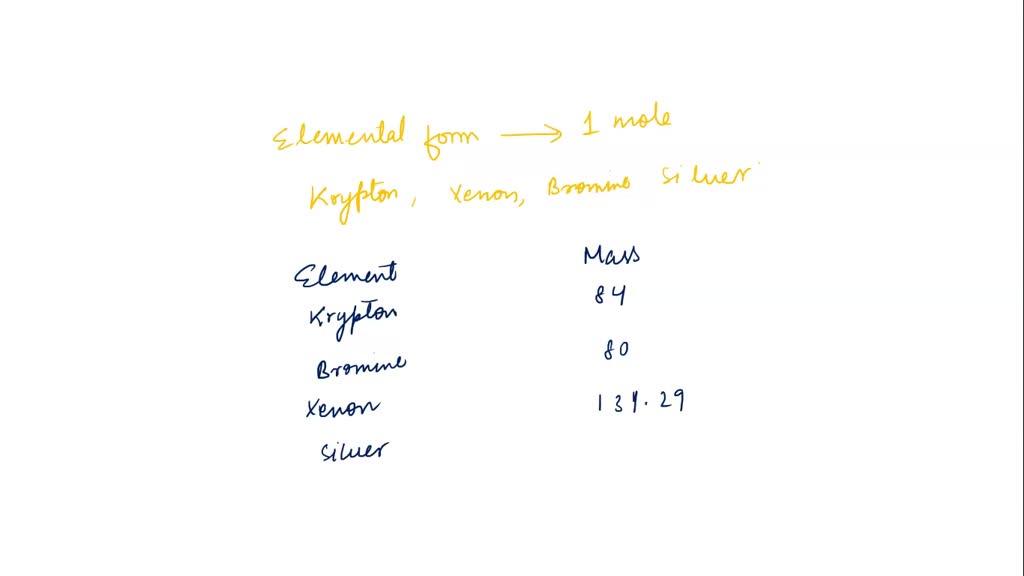 Elemental form → 1 mole
Krypton, Xenon, Bromine Silver
Element Mass
Krypton 84
Bromine 80
Xenon 131.29
Silver